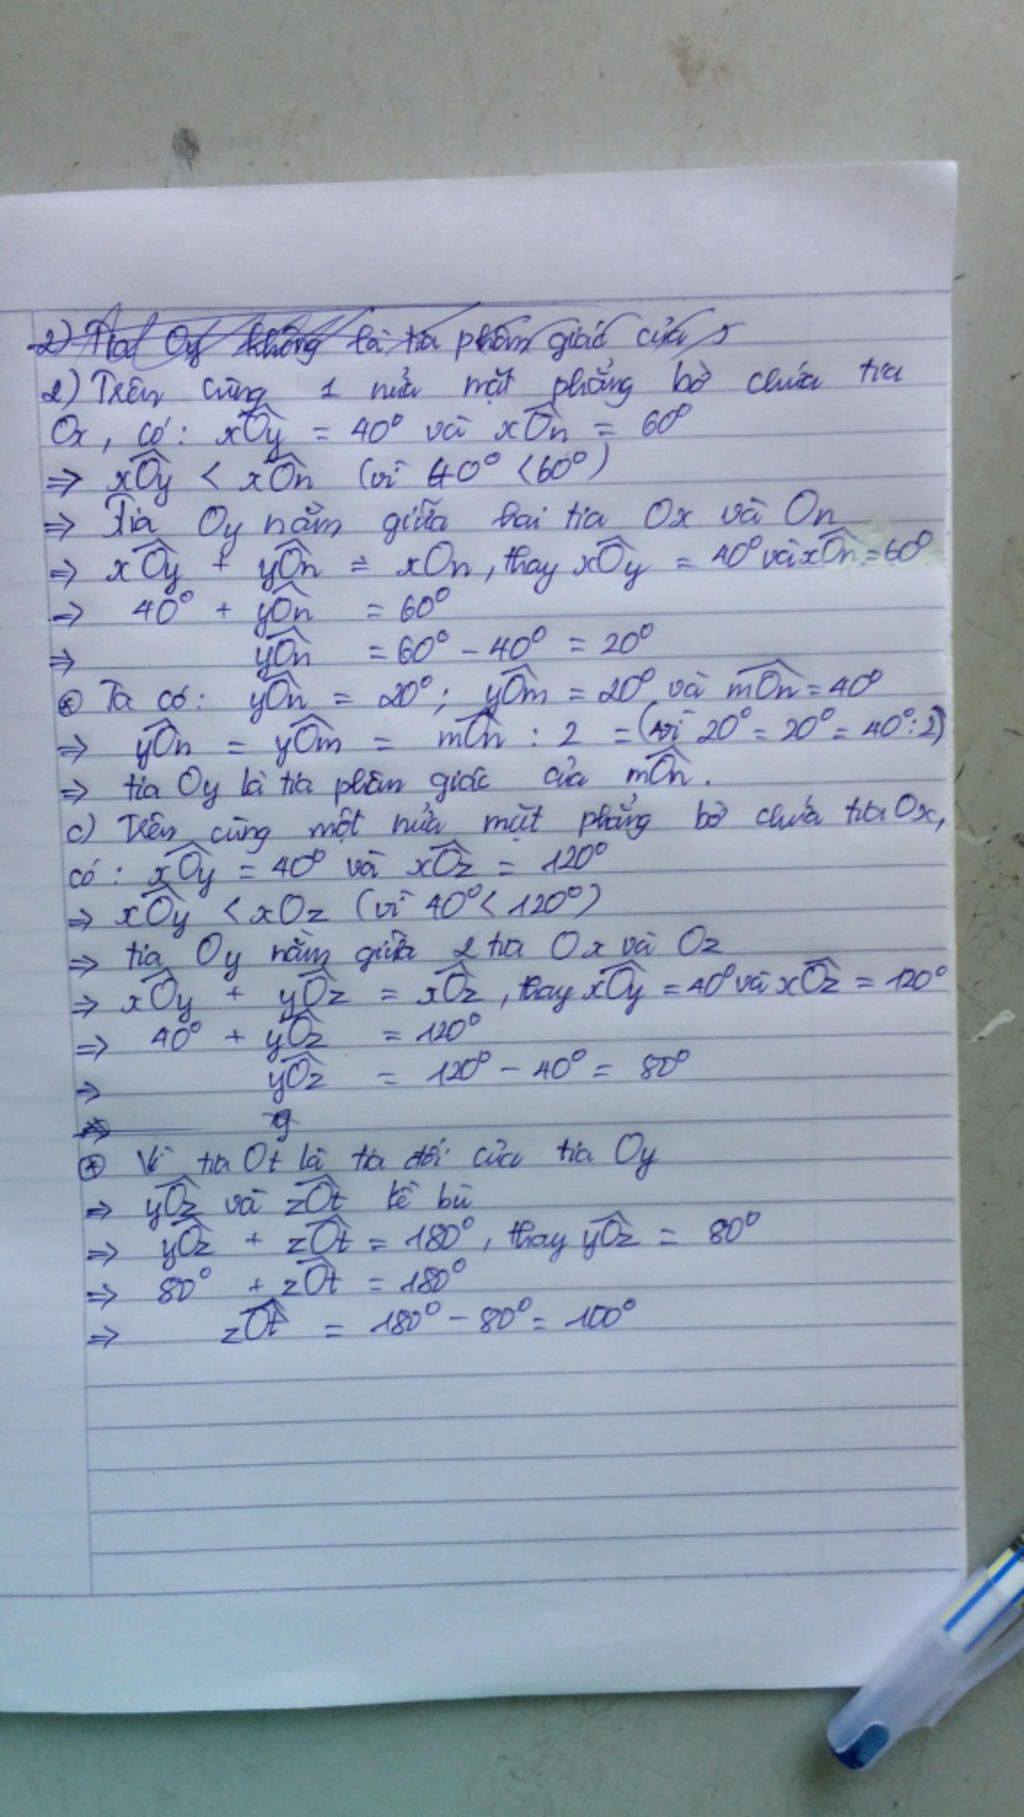 2) Tia Oy không là tia phân giác của x
2) Trên cùng 1 nửa mặt phẳng bờ chứa tia
Ox, có: xÔy = 40° và xÔn = 60°
=> xÔy < xÔn (vì 40° < 60°)
=> Tia Oy nằm giữa hai tia Ox và On
=> xÔy + yÔn = xOn, thay xÔy = 40° và xÔn = 60°
=> 40° + yÔn = 60°
=> yÔn = 60° - 40° = 20°
* Ta có: yÔn = 20°; yÔm = 20° và mÔn = 40°
=> yÔn = yÔm = mÔn : 2 = (vì 20° = 20° = 40° : 2)
=> tia Oy là tia phân giác của mÔn.
c) Trên cùng một nửa mặt phẳng bờ chứa tia Ox,
có: xÔy = 40° và xÔz = 120°
=> xÔy < xOz (vì 40° < 120°)
=> tia Oy nằm giữa 2 tia Ox và Oz
=> xÔy + yÔz = xÔz, thay xÔy = 40° và xÔz = 120°
=> 40° + yÔz = 120°
=> yÔz = 120° - 40° = 80°
=> y
* Vì tia Ot là tia đối của tia Oy
=> yÔz và zÔt kề bù
=> yÔz + zÔt = 180°, thay yÔz = 80°
=> 80° + zÔt = 180°
=> zÔt = 180° - 80° = 100°